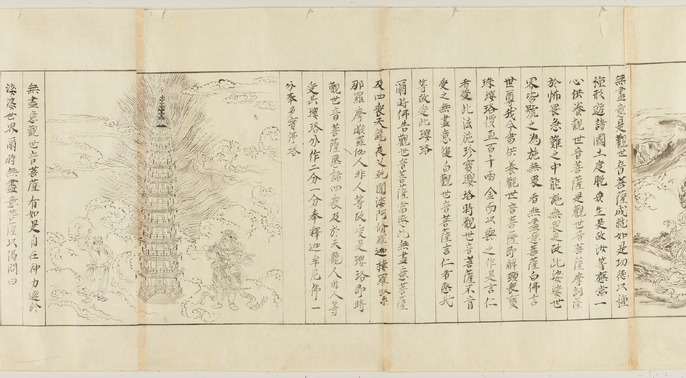 無盡意是觀世音菩薩成就如是功德以種
種形遊諸國土度脫衆生是故汝等應當一
心供養觀世音菩薩是觀世音菩薩摩訶薩
於怖畏急難之中能施無畏是故此娑婆世
界皆號之為施無畏者無盡意菩薩白佛言
世尊我今當供養觀世音菩薩即解頸衆寶
珠瓔珞價直百千兩金而以與之作是言仁
者受此法施珍寶瓔珞時觀世音菩薩不肯
受之無盡意復白觀世音菩薩言仁者愍我
等故受此瓔珞
爾時佛告觀世音菩薩當愍此無盡意菩薩
及四衆天龍夜叉乾闥婆阿修羅迦樓羅緊
那羅摩睺羅伽人非人等故受是瓔珞即時
觀世音菩薩愍諸四衆及於天龍人非人等
受其瓔珞分作二分一分奉釋迦牟尼佛一
分奉多寶佛塔
無盡意觀世音菩薩有如是自在神力遊於
娑婆世界爾時無盡意菩薩以偈問曰